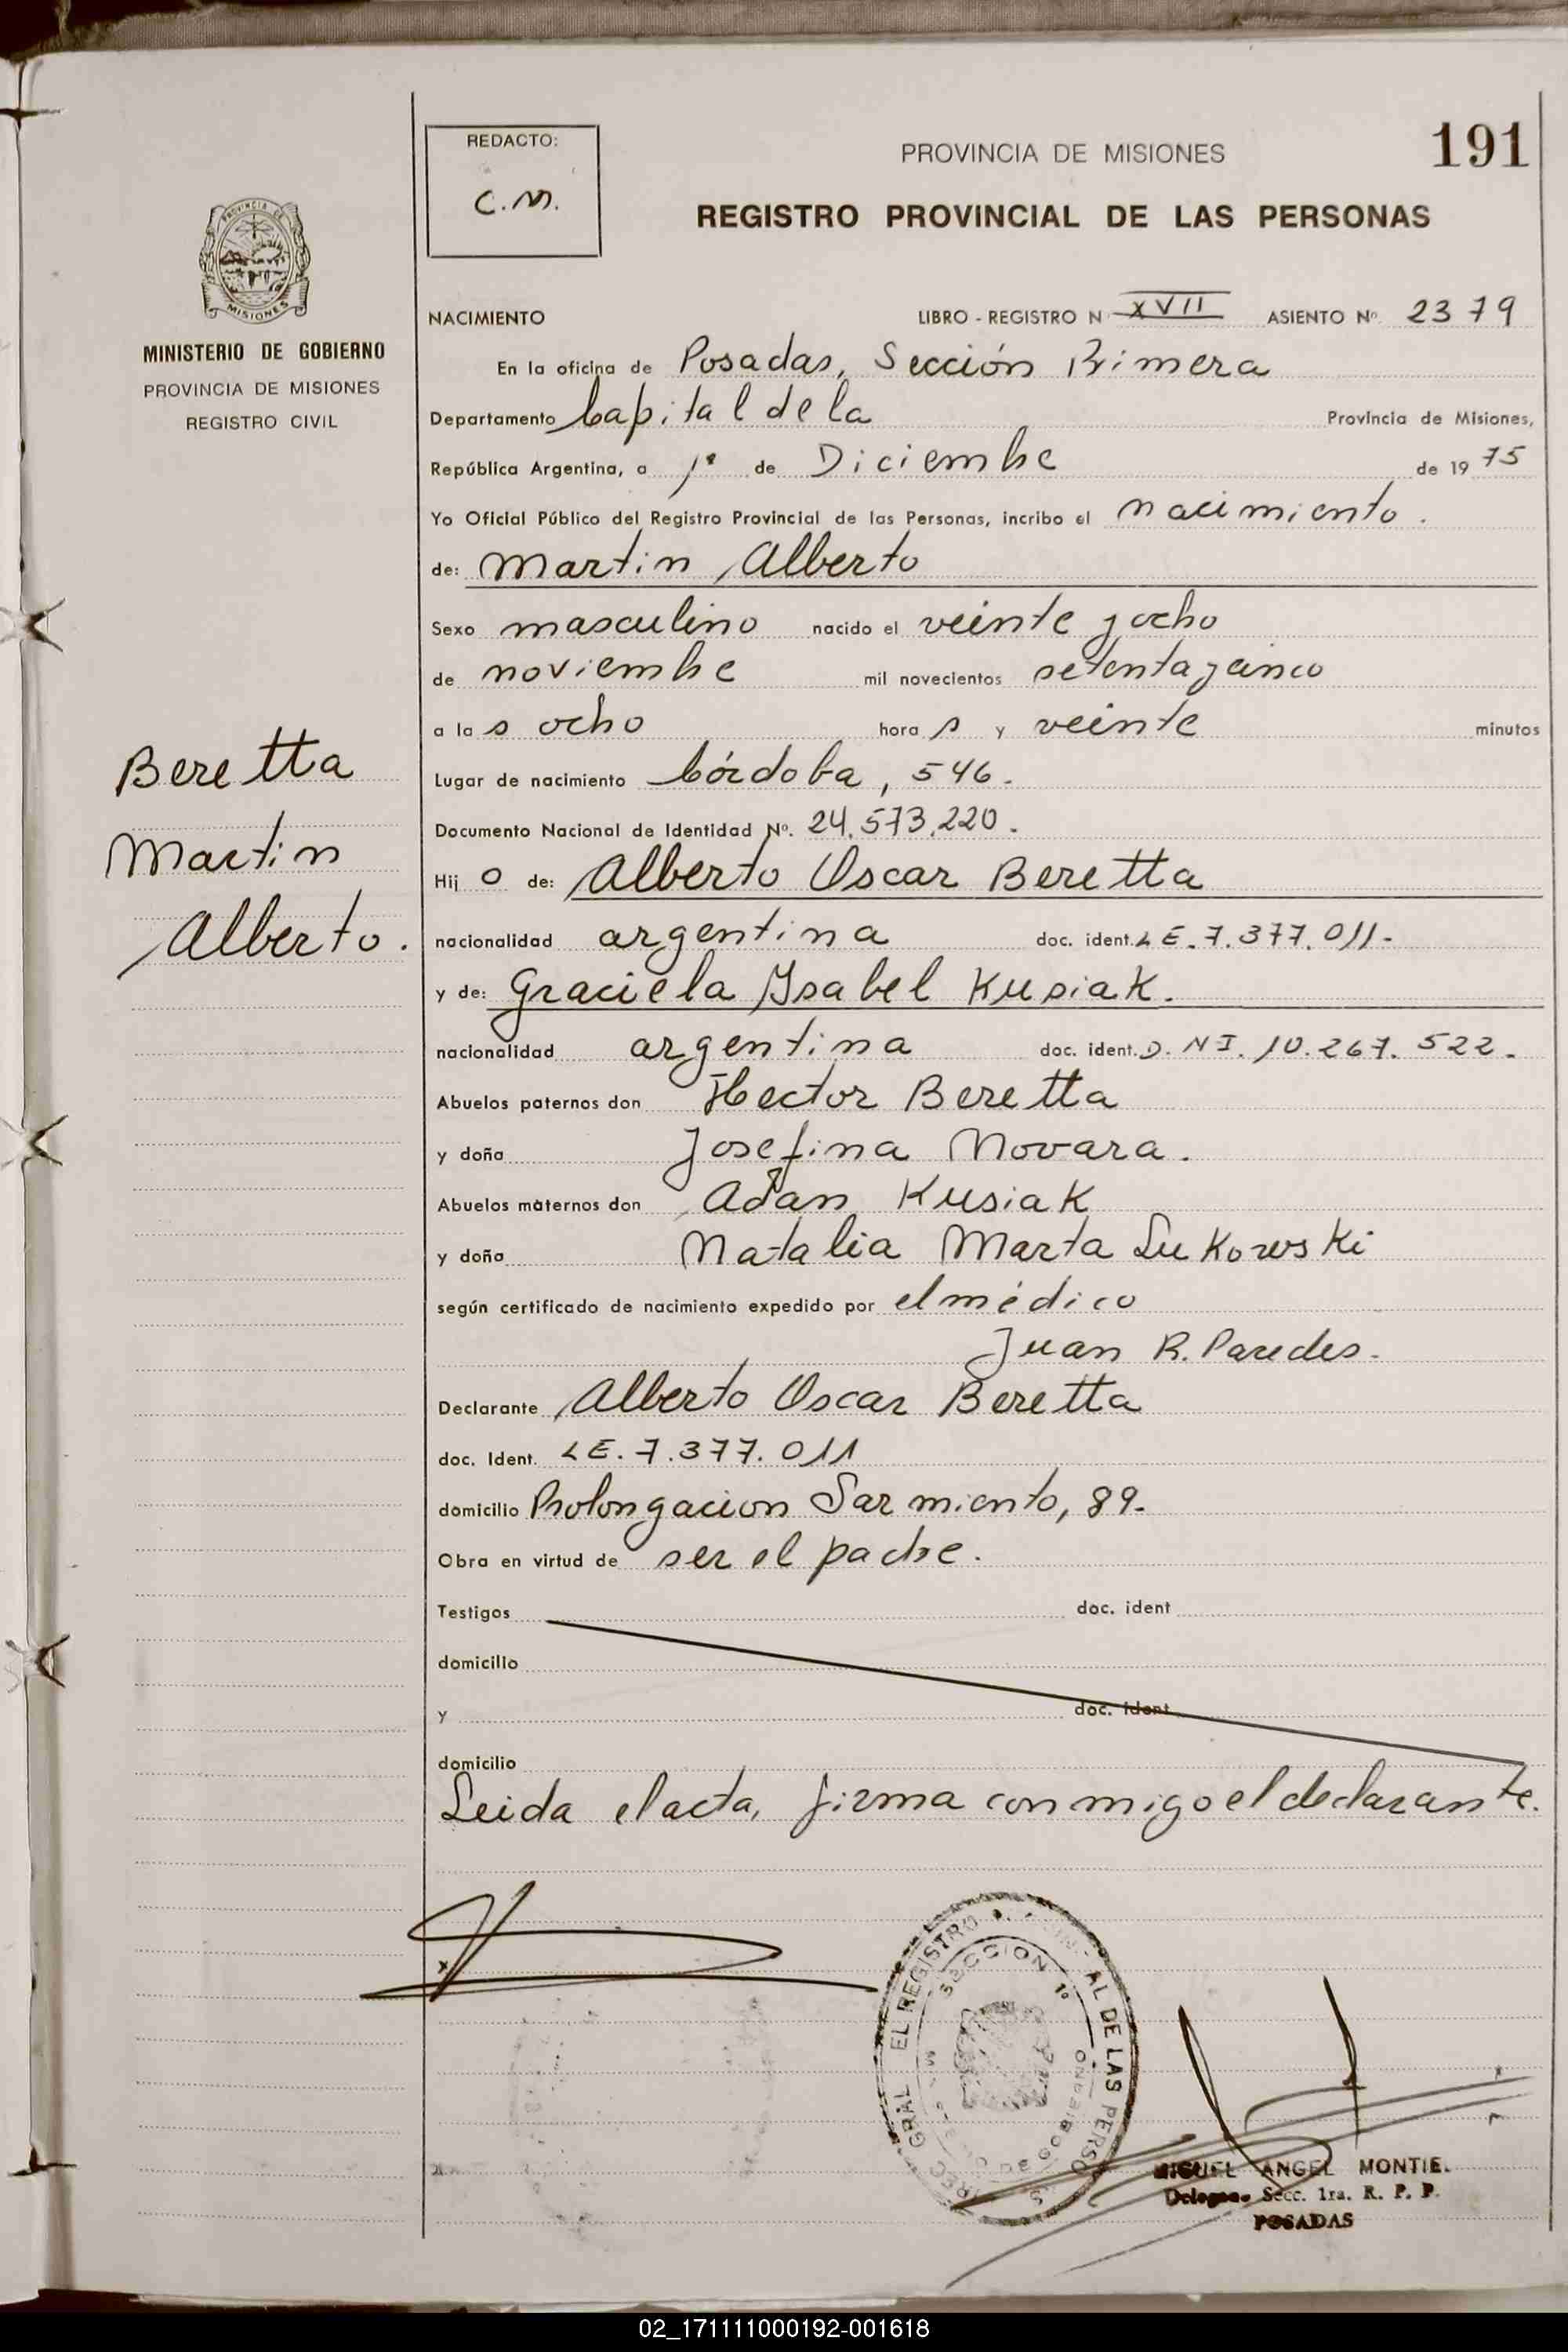 191
REDACTO:
C.M.
PROVINCIA DE MISIONES
REGISTRO PROVINCIAL DE LAS PERSONAS
PROVINCIA DE
MISIONES
MINISTERIO DE GOBIERNO
PROVINCIA DE MISIONES
REGISTRO CIVIL
NACIMIENTO LIBRO - REGISTRO N XVII ASIENTO Nº. 2379
En la oficina de Posadas, Sección Primera
Departamento Capital de la Provincia de Misiones,
República Argentina, a 1º de Diciembre de 1975
Yo Oficial Público del Registro Provincial de las Personas, incribo el nacimiento.
de: Martin Alberto
Sexo masculino nacido el veinte y ocho
de noviembre mil novecientos setenta y cinco
a las ocho horas y veinte minutos
Beretta
Martin
Alberto.
Lugar de nacimiento Córdoba, 546.
Documento Nacional de Identidad Nº. 24.573.220.
Hijo de: Alberto Oscar Beretta
nacionalidad argentina doc. ident. LE. 7.377.011-
y de: Graciela Ysabel Kusiak.
nacionalidad argentina doc. ident. D.NI. 10.267.522.
Abuelos paternos don Hector Beretta
y doña Josefina Novara.
Abuelos maternos don Adan Kusiak
y doña Natalia Marta Lukowski
según certificado de nacimiento expedido por el médico
Juan R. Paredes.
Declarante Alberto Oscar Beretta
doc. Ident. LE. 7.377.011
domicilio Prolongacion Sarmiento, 89.
Obra en virtud de ser el padre.
Testigos doc. ident
domicilio
y doc. ident
domicilio
Leida el acta, firma conmigo el declarante.
x
GRAL EL REGISTRO AL DE LAS PERSO
SECCION 1º
MIGUEL ANGEL MONTIEL
Delegado Secc. 1ra. R. P. P.
POSADAS
02_171111000192-001618